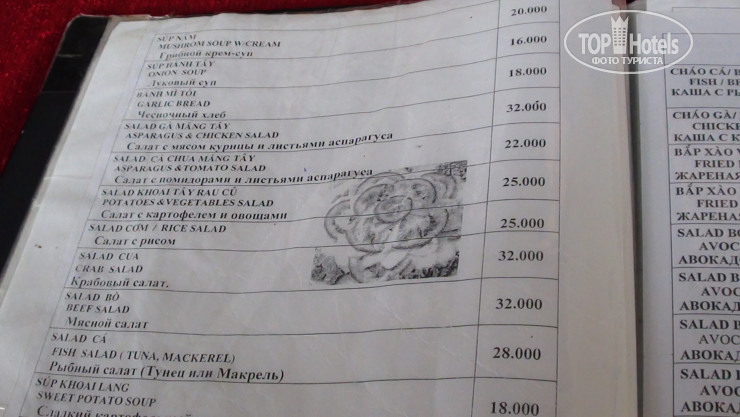 TOP Hotels
ФОТО ТУРИСТА
20.000
SÚP NẤM
MUSHROM SOUP W/CREAM
Грибной крем-суп
16.000
SÚP HÀNH TÂY
ONION SOUP
Луковый суп
18.000
BÁNH MÌ TỎI
GARLIC BREAD
Чесночный хлеб
32.000
SALAD GÀ MĂNG TÂY
ASPARAGUS & CHICKEN SALAD
Салат с мясом курицы и листьями аспарагуса
22.000
SALAD CÀ CHUA MĂNG TÂY
ASPARAGUS &TOMATO SALAD
Салат с помидорами и листьями аспарагуса
25.000
SALAD KHOAI TÂY RAU CỦ
POTATOES &VEGETABLES SALAD
Салат с картофелем и овощами
25.000
SALAD CƠM / RICE SALAD
Салат с рисом
32.000
SALAD CUA
CRAB SALAD
Крабовый салат.
32.000
SALAD BÒ
BEEF SALAD
Мясной салат
28.000
SALAD CÁ
FISH SALAD ( TUNA, MACKEREL)
Рыбный салат (Тунец или Макрель)
18.000
SÚP KHOAI LANG
SWEET POTATO SOUP
Сладкий
CHÁO CÁ/
FISH /
КАША С
CHÁO GÀ/
CHICKEN
КАША С
BẮP XÀO
FRIED
ЖАРЕНАЯ
BẮP XÀO
FRIED
ЖАРЕНАЯ
SALAD
AVOC
АВОКАДО
SALAD
AVOC
АВОКАДО
SALAD
AVOC
АВОКАД
SALAD
AVO
АВОКАД